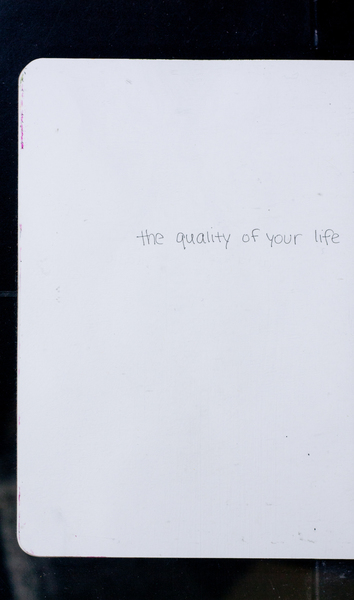 the quality of your life